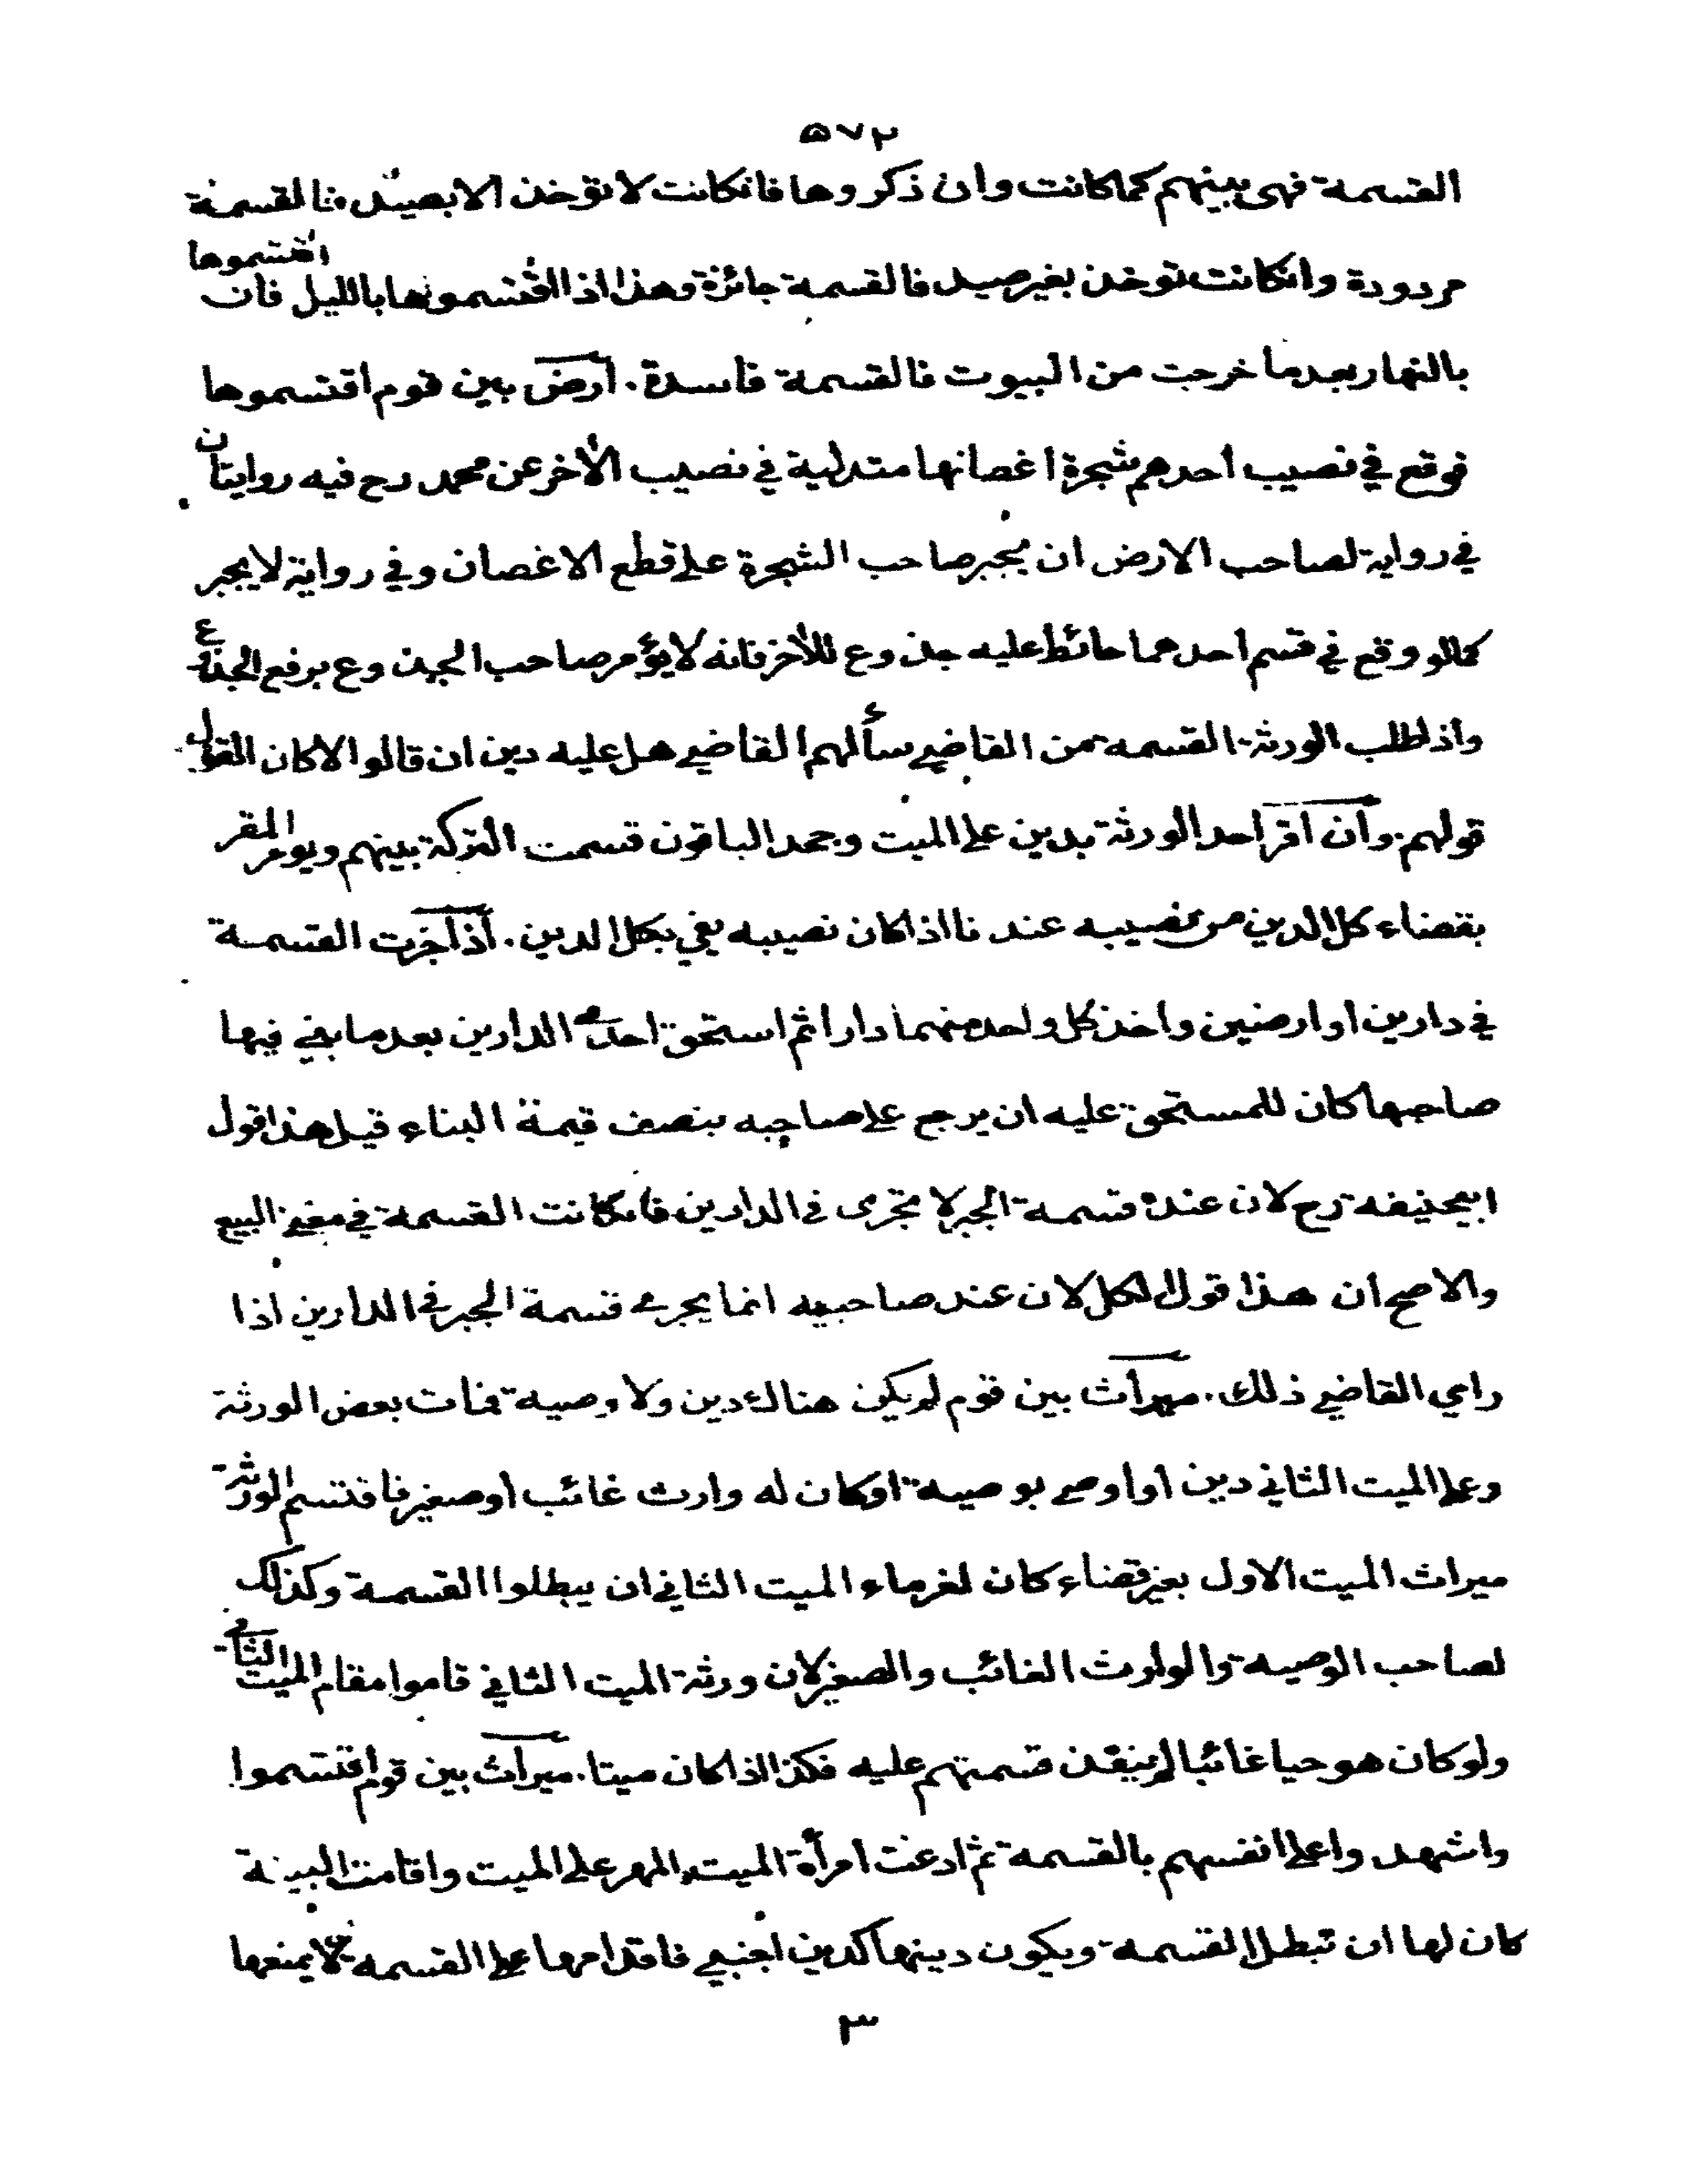 ۵۷۲
القسمة فهي بينهم كما كانت وان ذكروها فانكانت لا تؤخذ الا بصيد فالقسمة
مردودة وانكانت تؤخذ بغير صيد فالقسمة جائزة وهذا اذا اقتسموها بالليل فان اقتسموها
بالنهار بعد ما خرجت من البيوت فالقسمة فاسدة. ارض بين قوم اقتسموها
فوقع في نصيب احدهم شجرة اغصانها متدلية في نصيب الأخر عن محمد رح فيه روايتان
في رواية لصاحب الارض ان يجبر صاحب الشجرة على قطع الاغصان وفي رواية لا يجبر
كما لو وقع في قسم احدهما حائط عليه جذوع للأخر فانه لا يؤمر صاحب الجذوع برفع الجذوع
واذا طلب الورثة القسمة من القاضي سألهم القاضي هل عليه دين ان قالوا لا كان القول
قولهم. وان اقر احد الورثة بدين على الميت وجحد الباقون قسمت التركة بينهم ويومر المقر
بقضاء كل الدين من نصيبه عندنا اذا كان نصيبه يفي بكل الدين. اذا جرت القسمة
في دارين او ارضين واخذ كل واحد منهما دارا ثم استحق احد الدارين بعد ما بنى فيها
صاحبها كان للمستحق عليه ان يرجع على صاحبه بنصف قيمة البناء قيل هذا قول
ابيحنيفة رح لان عنده قسمة الجبر لا تجرى في الدارين فانكانت القسمة في معنى البيع
والاصح ان هذا قول الكل لان عند صاحبيه انما يجرى قسمة الجبر في الدارين اذا
راى القاضي ذلك. ميراث بين قوم لم يكن هناك دين ولا وصية فمات بعض الورثة
وعلى الميت الثاني دين او اوصى بوصية او كان له وارث غائب او صغير فاقتسم الورثة
ميراث الميت الاول بغير قضاء كان لغرماء الميت الثاني ان يبطلوا القسمة وكذلك
لصاحب الوصية والوارث الغائب والصغير لان ورثة الميت الثاني قاموا مقام الميت الثاني
ولو كان هو حيا غائبا لم ينفذ قسمتهم عليه فكذا اذا كان ميتا. ميراث بين قوم اقتسموا
واشهدوا على انفسهم بالقسمة ثم ادعت امرأة الميت المهر على الميت واقامت البينة
كان لها ان تبطل القسمة ويكون دينها كدين اجنبي فاقدامها على القسمة لا يمنعها
۳